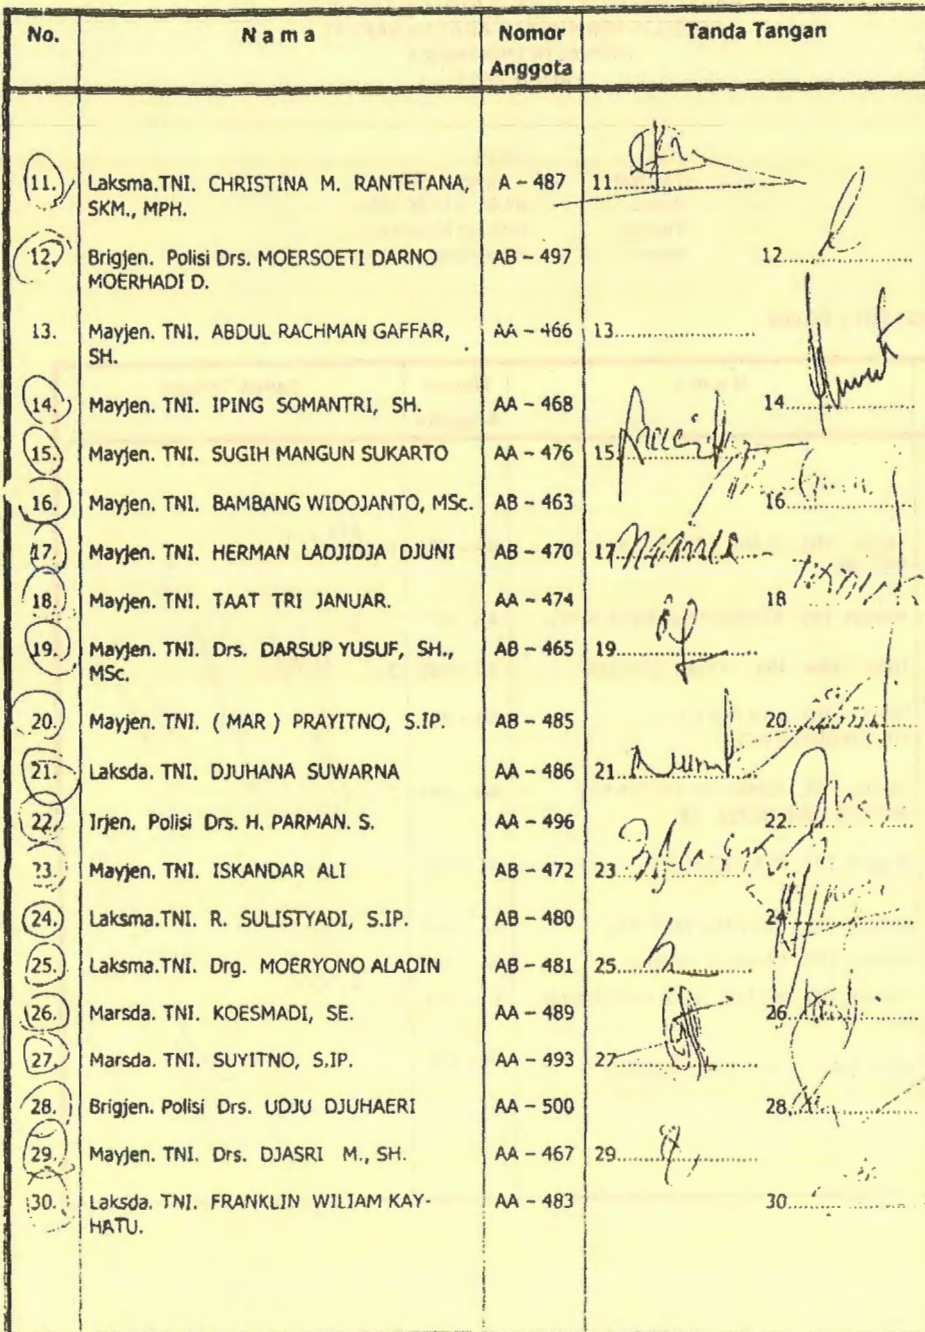 No. N a m a Nomor Anggota Tanda Tangan
11. Laksma.TNI. CHRISTINA M. RANTETANA, A – 487 11.
SKM., MPH.
12. Brigjen. Polisi Drs. MOERSOETI DARNO AB – 497 12.
MOERHADI D.
13. Mayjen. TNI. ABDUL RACHMAN GAFFAR, AA – 466 13.
SH.
14. Mayjen. TNI. IPING SOMANTRI, SH. AA – 468 14.
15. Mayjen. TNI. SUGIH MANGUN SUKARTO AA – 476 15.
16. Mayjen. TNI. BAMBANG WIDOJANTO, MSc. AB – 463 16.
17. Mayjen. TNI. HERMAN LADJIDJA DJUNI AB – 470 17
18. Mayjen. TNI. TAAT TRI JANUAR. AA – 474 18
19. Mayjen. TNI. Drs. DARSUP YUSUF, SH., AB – 465 19.
MSc.
20. Mayjen. TNI. ( MAR ) PRAYITNO, S.IP. AB – 485 20.
21. Laksda. TNI. DJUHANA SUWARNA AA – 486 21.
22. Irjen. Polisi Drs. H. PARMAN. S. AA – 496 22.
23. Mayjen. TNI. ISKANDAR ALI AB – 472 23.
24. Laksma.TNI. R. SULISTYADI, S.IP. AB – 480 24.
25. Laksma.TNI. Drg. MOERYONO ALADIN AB – 481 25.
26. Marsda. TNI. KOESMADI, SE. AA – 489 26.
27. Marsda. TNI. SUYITNO, S.IP. AA – 493 27
28. Brigjen. Polisi Drs. UDJU DJUHAERI AA – 500 28.
29. Mayjen. TNI. Drs. DJASRI M., SH. AA – 467 29.
30. Laksda. TNI. FRANKLIN WILIAM KAY- AA – 483 30.
HATU.